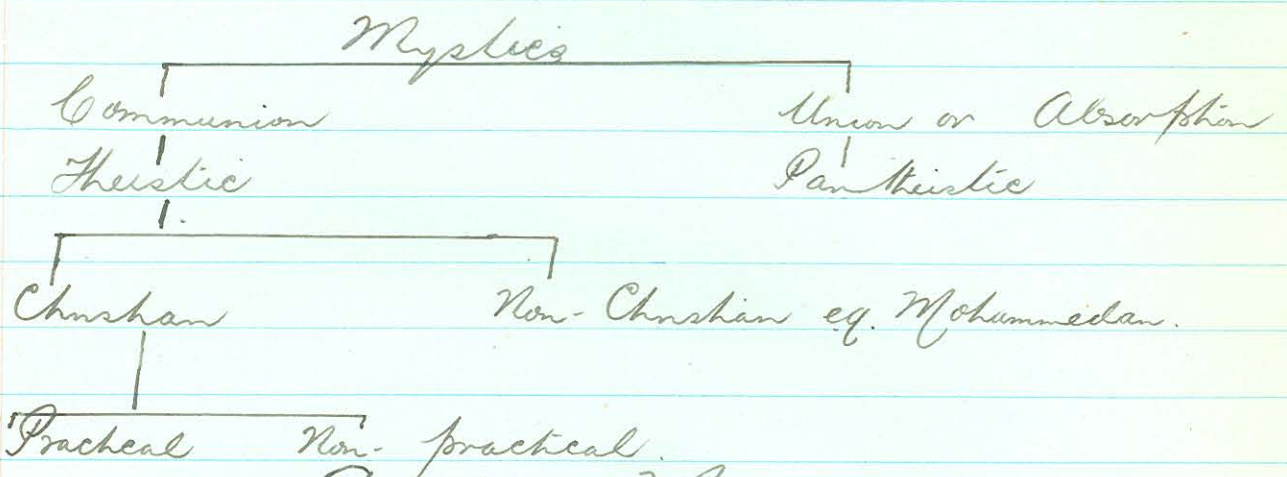 Mystics
Communion Union or Absorption
Theistic Pantheistic
Christian Non-Christian eg. Mohammedan.
Practical Non-practical.